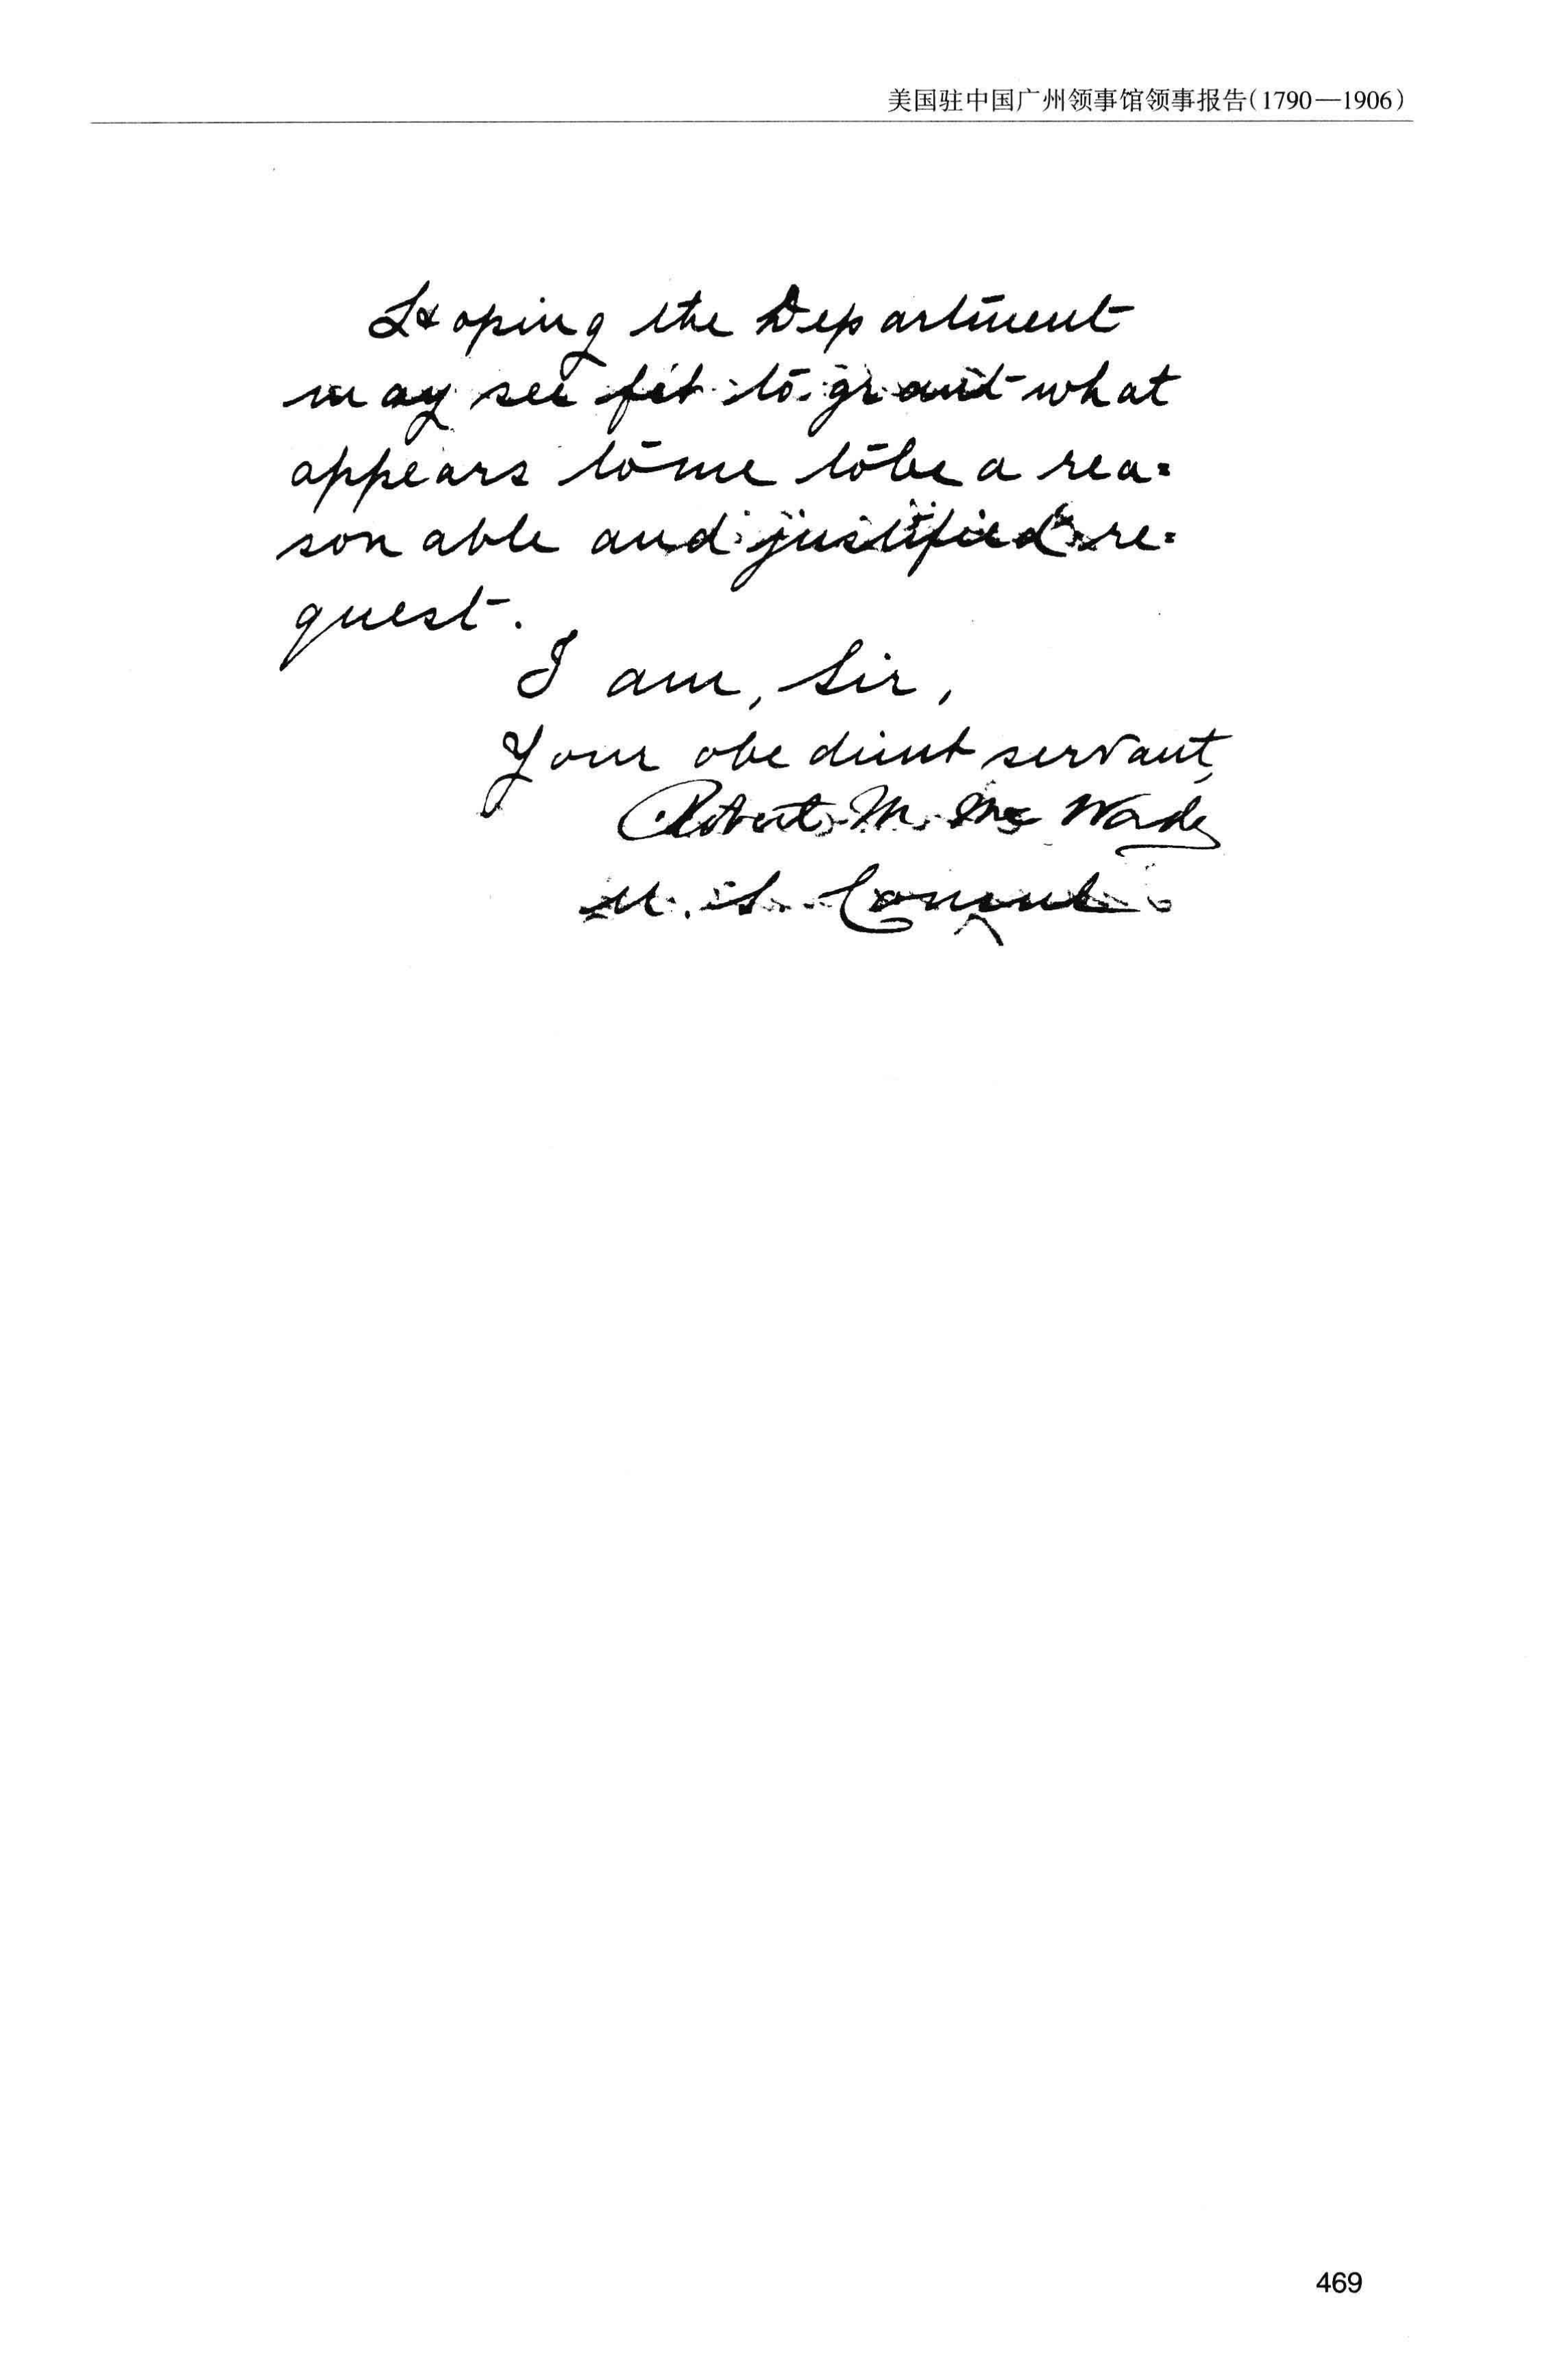 美国驻中国广州领事馆领事报告(1790—1906)
Hoping the Department
may see fit to grant what
appears to me to be a rea=
sonable and justified re=
quest.
I am, Sir,
Your obedient servant,
Robert M. McWade
U. S. Consul.
469